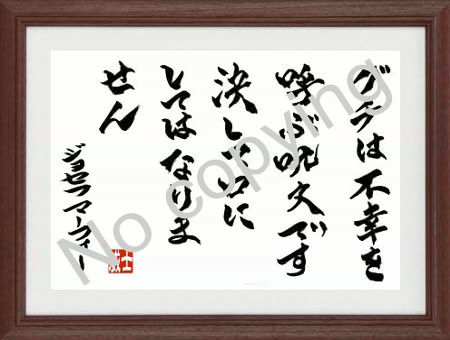 グチは不幸を
呼ぶ呪文です
決して口に
してはなりま
せん
ジョセフマーフィー
No copying